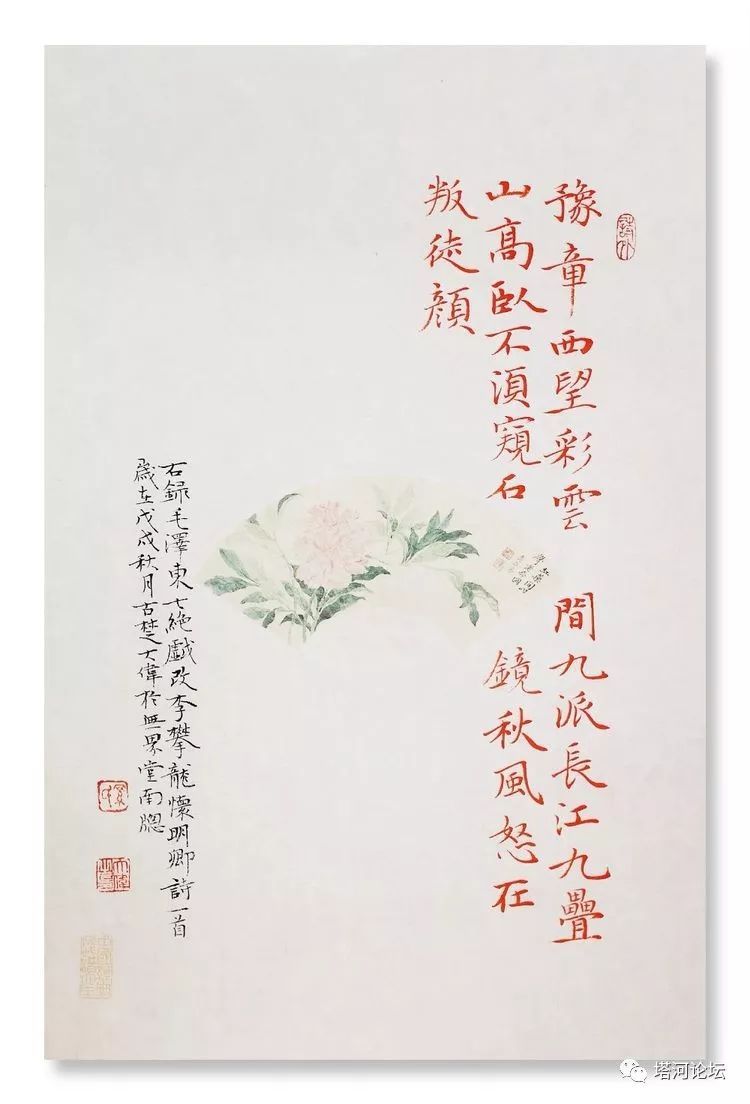 豫章西望彩雲間九派長江九疊
山高臥不湏窺石鏡秋風怒在
叛徒顏
右録毛澤東七絶戲改李攀龍懷明卿詩一首
歲在戊戌秋月古楚大偉於無界堂南牕
塔河论坛